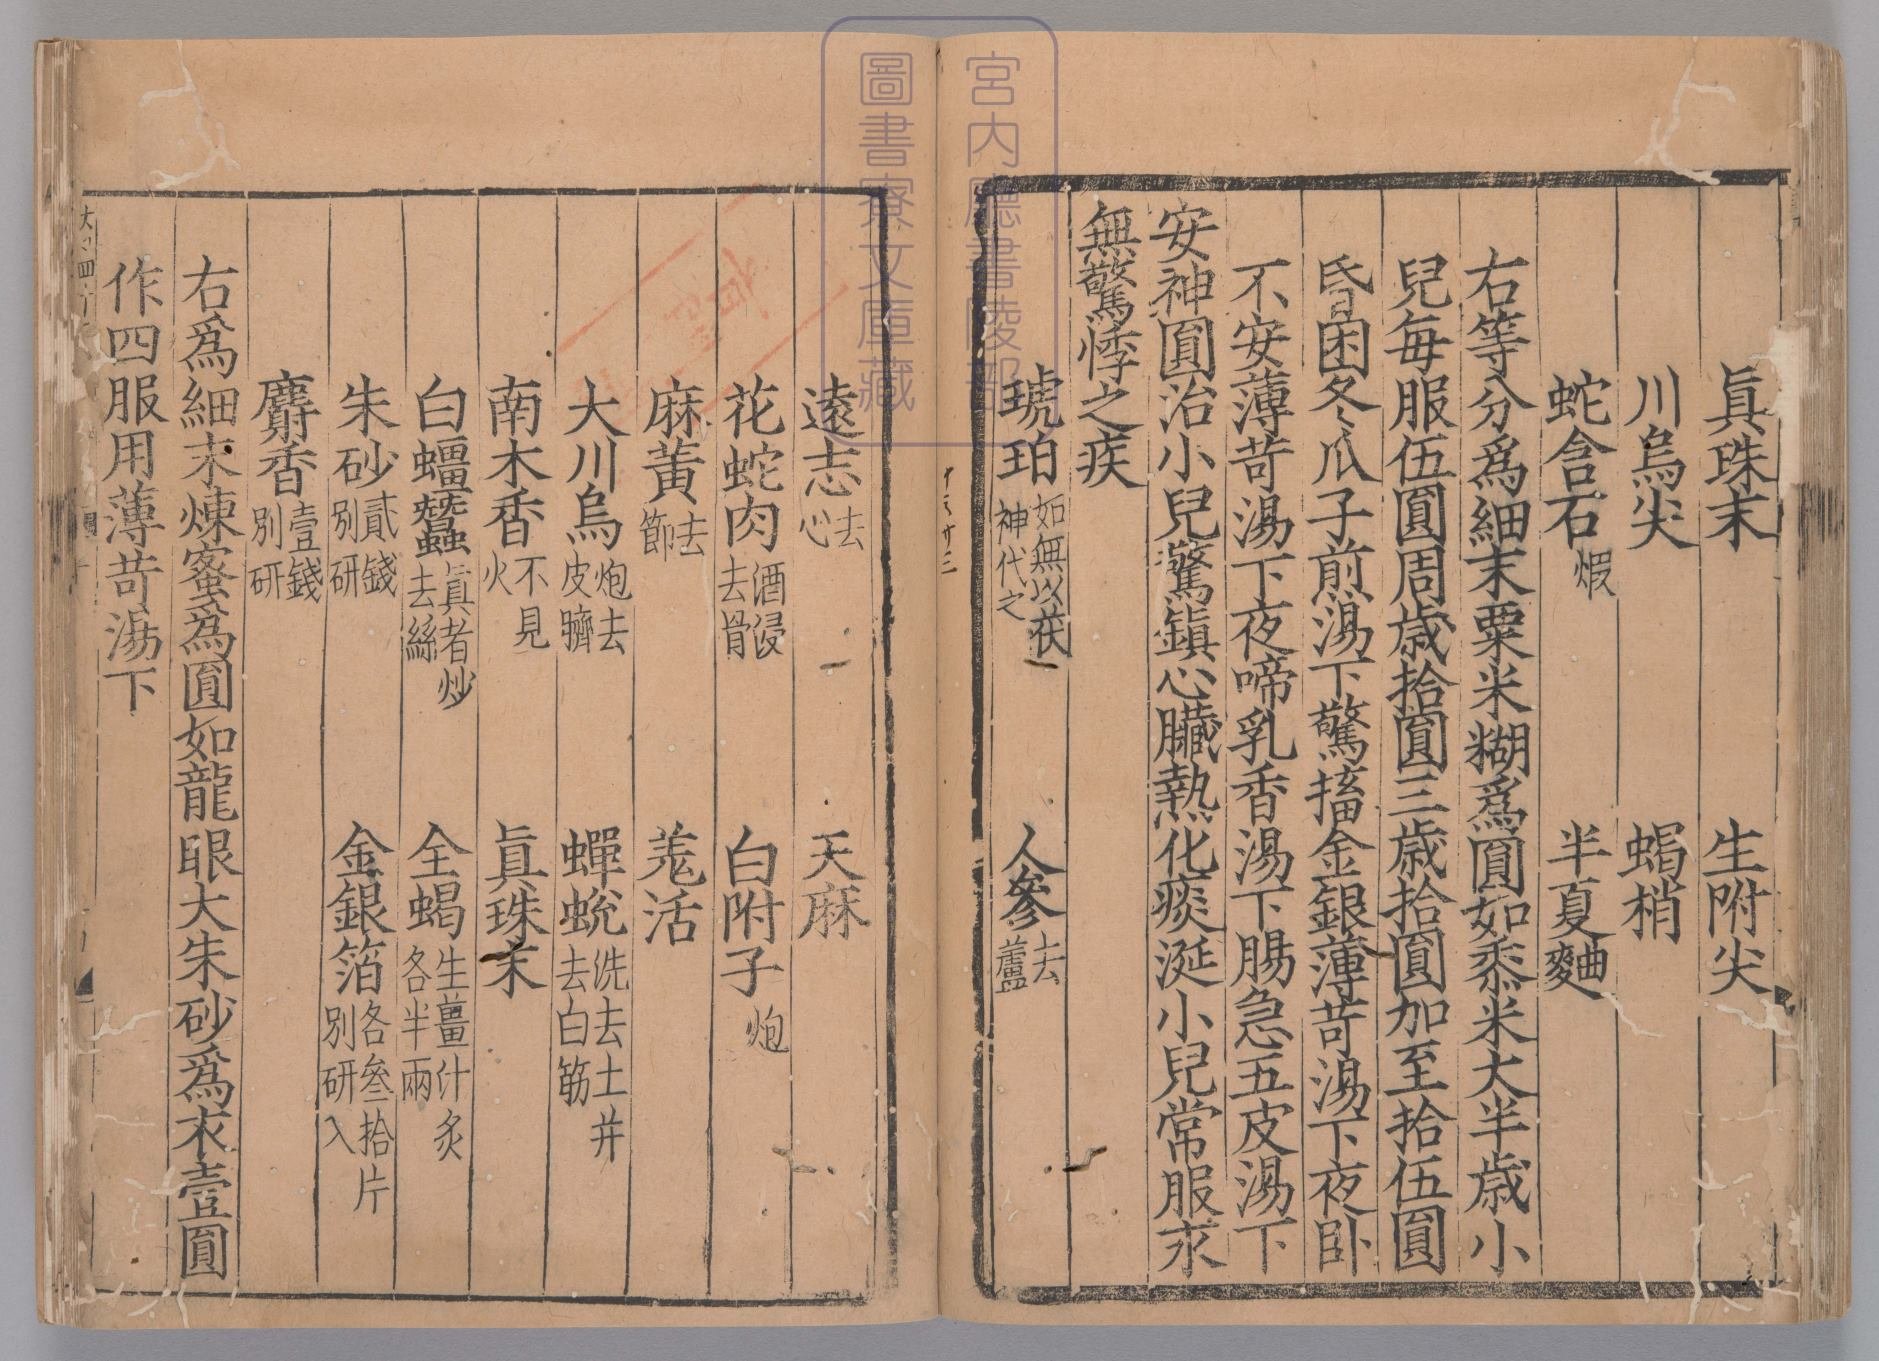 眞珠末 生附尖
川烏尖 蝎梢
蛇含石煅 半夏麯
右等分爲細末粟米糊爲圓如黍米大半歲小
兒每服伍圓周歲拾圓三歲拾圓加至拾伍圓
昏困冬瓜子煎湯下驚搐金銀薄荷湯下夜卧
不安薄荷湯下夜啼乳香湯下腸急五皮湯下
安神圓治小兒驚鎭心臟熱化痰涎小兒常服永
無驚悸之疾
琥珀如無以茯神代之 人參去蘆
遠志去心 天麻
花蛇肉酒浸去骨 白附子炮
麻黃去節 羌活
大川烏炮去皮臍 蟬蛻洗去土并去白筋
南木香不見火 眞珠末
白蠶蠶眞者炒去絲 全蝎生薑汁炙各半兩
朱砂貳錢別研 金銀箔各叄拾片別研入
麝香壹錢別研
右爲細末煉蜜爲圓如龍眼大朱砂爲衣壹圓
作四服用薄荷湯下
宮內廳書陵部
圖書寮文庫藏